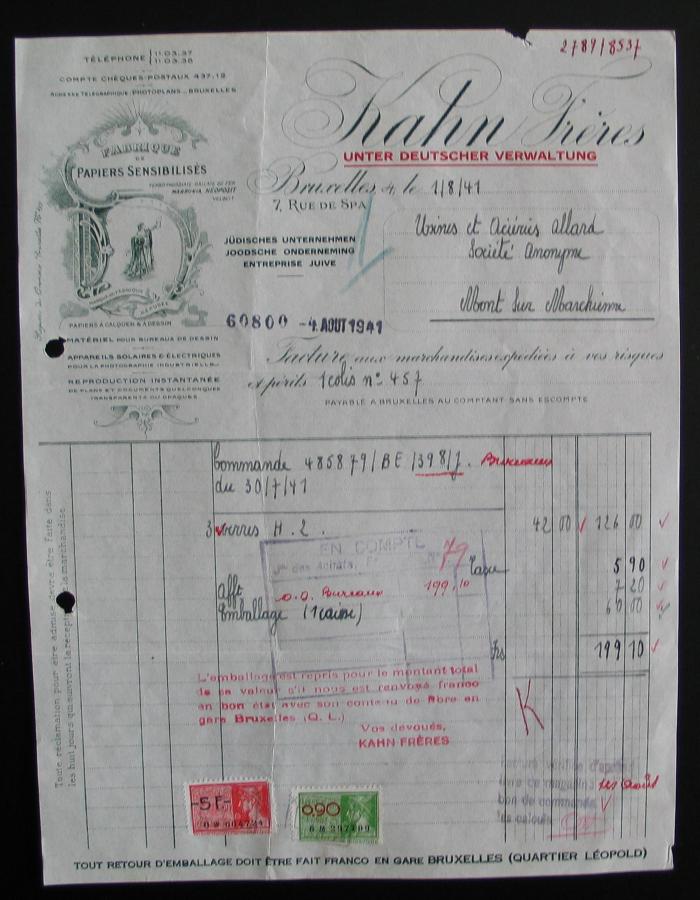 2789/8537
TÉLÉPHONE 11.03.37
11.03.38
COMPTE CHÈQUES-POSTAUX 437.19
ADRESSE TÉLÉGRAPHIQUE: PHOTOPLANS - BRUXELLES
Kahn Frères
UNTER DEUTSCHER VERWALTUNG
FABRIQUE
DE
PAPIERS SENSIBILISÉS
MARRONIA, NÉOPOSIT
Bruxelles, le 1/8/41
7, RUE DE SPA
Usines et Aciéries Allard
Société Anonyme
Mont sur Marchienne
JÜDISCHES UNTERNEHMEN
JOODSCHE ONDERNEMING
ENTREPRISE JUIVE
MARQUE DE FABRIQUE
DÉPOSÉE
PAPIERS À CALQUER & À DESSIN
60800 -4 AOUT 1941
MATÉRIEL POUR BUREAUX DE DESSIN
APPAREILS SOLAIRES & ÉLECTRIQUES
POUR LA PHOTOGRAPHIE INDUSTRIELLE
REPRODUCTION INSTANTANÉE
DE PLANS ET DOCUMENTS QUELCONQUES
TRANSPARENTS OU OPAQUES
Facture aux marchandises expédiées à vos risques
et périls 1 colis n° 457
PAYABLE A BRUXELLES AU COMPTANT SANS ESCOMPTE
Commande 485879/BE/398/J. Bureaux
du 30/7/41
3 verres H.2. 42 00 126 00
EN COMPTE
des Achats, 79
Taxe 5 90
Afft 7 20
Bureaux 199,10
Emballage (1 caisse) 60 00
Frs 199 10
L'emballage est repris pour le montant total
de sa valeur s'il nous est renvoyé franco
en bon état avec son contenu de fibre en
gare Bruxelles (Q. L.)
Vos dévoués,
KAHN FRÈRES
K
Toute réclamation pour être admise devra être faite dans
les huit jours qui suivront la réception de la marchandise.
bon de commande
les calculs
-5F-
0,90
TOUT RETOUR D'EMBALLAGE DOIT ÊTRE FAIT FRANCO EN GARE BRUXELLES (QUARTIER LÉOPOLD)